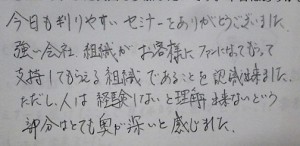 今日も判りやすいセミナーをありがとうございました。
強い会社、組織が お客様に ファンになってもらって
支持してもらえる組織 であることを 認識出来ました。
ただし、人は 経験しないと理解 出来ないという
部分はとても奥が深いと感じました。